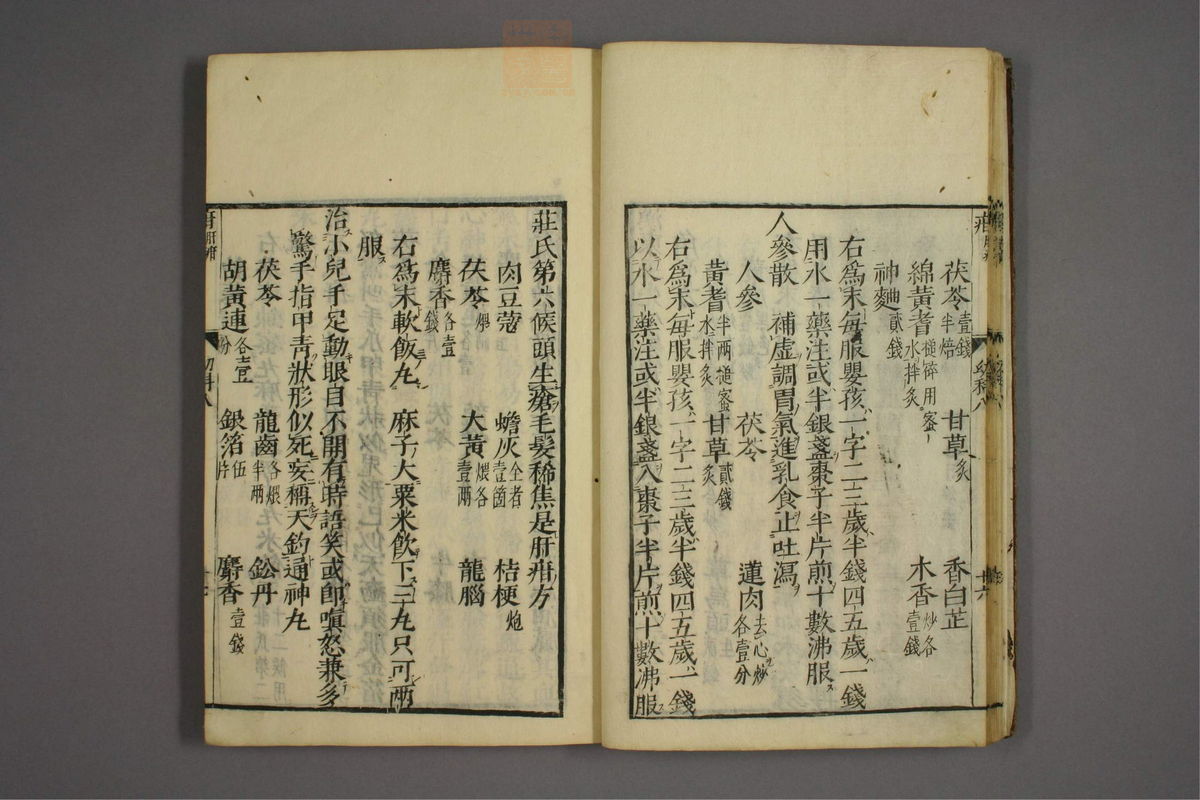 茯苓壹錢半焙　甘草炙　香白芷
綿黃耆槌碎用蜜水拌炙　木香炒各壹錢
神麯貳錢
右爲末每服嬰孩一字二三歲半錢四五歲一錢
用水一藥注或半銀盞棗子半片煎十數沸服
人參散　補虛調胃氣進乳食止吐瀉
人參　茯苓　蓮肉去心炒各壹分
黃耆半兩槌蜜水拌炙　甘草炙貳錢
右爲末每服嬰孩一字二三歲半錢四五歲一錢
以水一藥注或半銀盞入棗子半片煎十數沸服
幼科八
十六
莊氏第六候頭生瘡毛髮稀焦是肝疳方
肉豆蔻　蟾灰全者壹箇　桔梗炮
茯苓　大黃煨各壹兩　龍腦
麝香各壹錢
右爲末軟飯丸　麻子大粟米飲下三丸只可兩
服
治小兒手足動眼目不開有時語笑或卽嗔怒兼多
驚手指甲靑狀形似死妄稱天釣通神丸
茯苓　龍齒各煨半兩　鈆丹
胡黃連各壹分　銀箔伍片　麝香壹錢